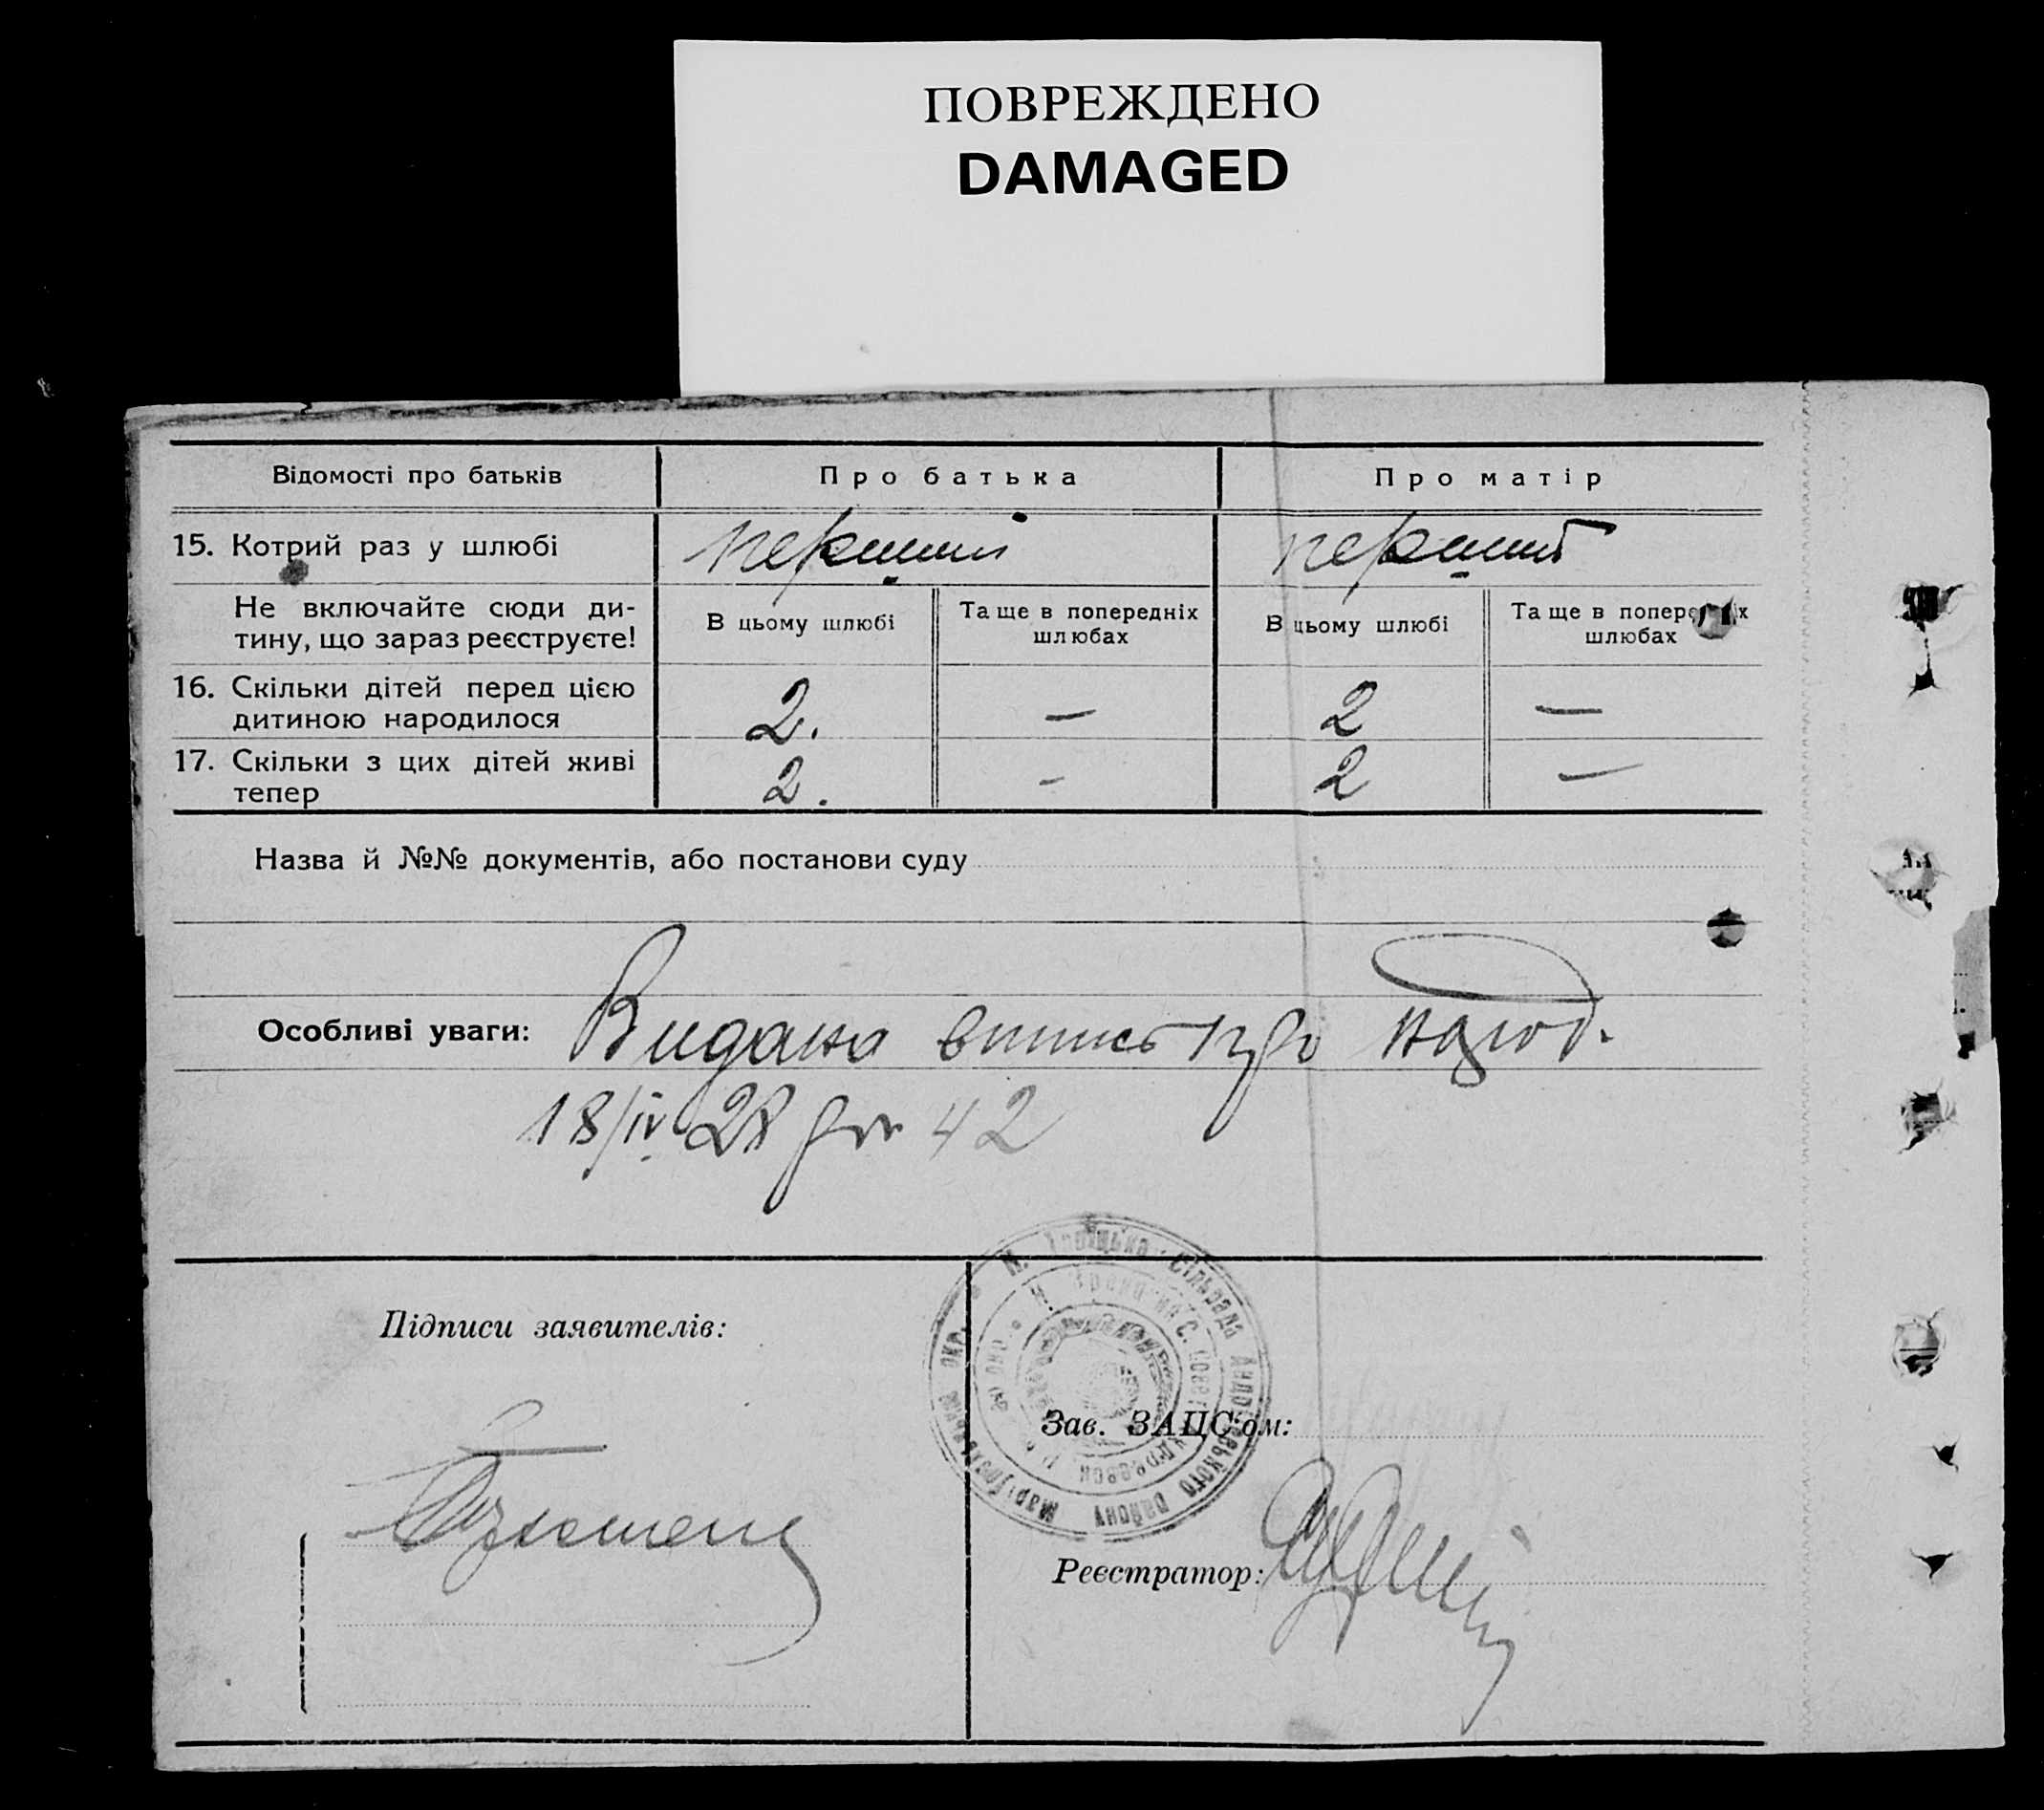 ПОВРЕЖДЕНО
DAMAGED
Відомості про батьків
Про батька
Про матір
15. Котрий раз у шлюбі
перший
перший
Не включайте сюди ди-
тину, що зараз реєструєте!
В цьому шлюбі
Та ще в попередніх
шлюбах
В цьому шлюбі
Та ще в попередніх
шлюбах
16. Скільки дітей перед цією
дитиною народилося
2.
—
2
—
17. Скільки з цих дітей живі
тепер
2.
-
2
—
Назва й №№ документів, або постанови суду
Особливі уваги: Видана випись про народ.
18/IV 28 42
Підписи заявителів:
Сільрада Андріївського району Маріупольськ окр.
Зав. ЗАЦС'ом:
Реєстратор: